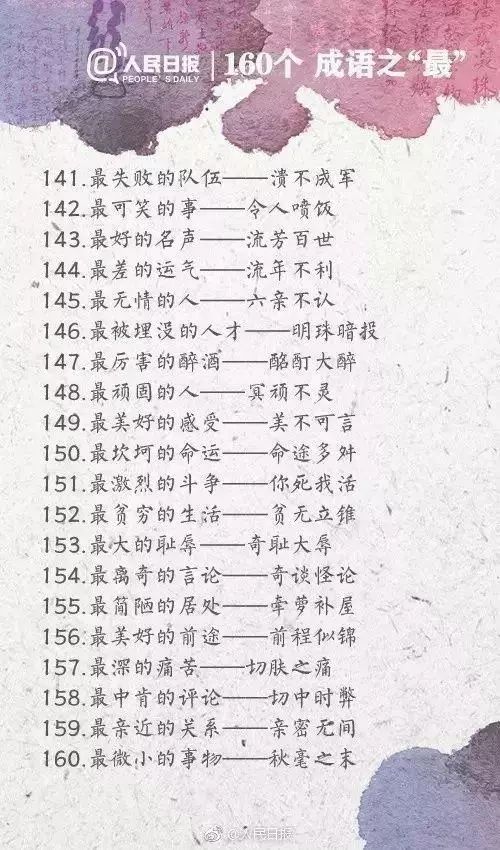 @人民日报 PEOPLE'S DAILY | 160个 成语之“最”
141.最失败的队伍——溃不成军
142.最可笑的事——令人喷饭
143.最好的名声——流芳百世
144.最差的运气——流年不利
145.最无情的人——六亲不认
146.最被埋没的人才——明珠暗投
147.最厉害的醉酒——酩酊大醉
148.最顽固的人——冥顽不灵
149.最美好的感受——美不可言
150.最坎坷的命运——命途多舛
151.最激烈的斗争——你死我活
152.最贫穷的生活——贫无立锥
153.最大的耻辱——奇耻大辱
154.最离奇的言论——奇谈怪论
155.最简陋的居处——牵萝补屋
156.最美好的前途——前程似锦
157.最深的痛苦——切肤之痛
158.最中肯的评论——切中时弊
159.最亲近的关系——亲密无间
160.最微小的事物——秋毫之末
@人民日报